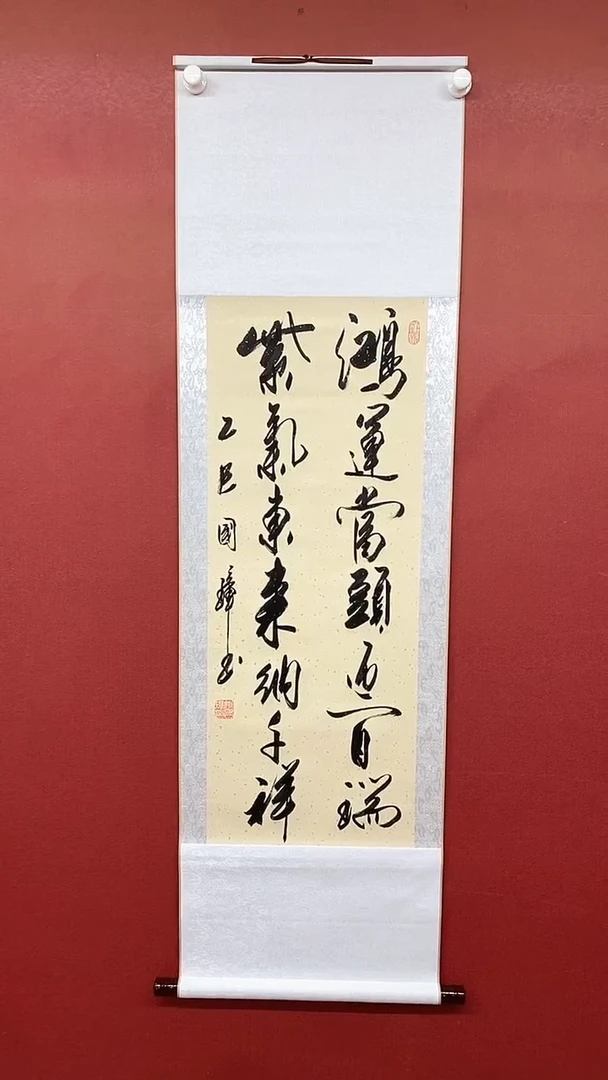 鴻運當頭迎百瑞
紫氣東來納千祥
乙巳國
書